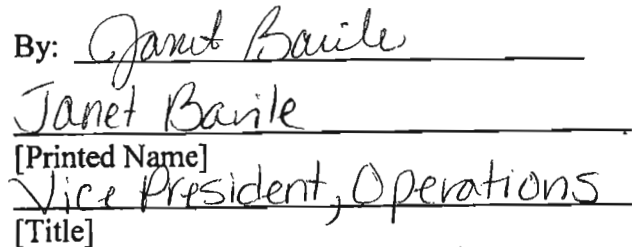 By: Janet Barile
Janet Barile
[Printed Name]
Vice President, Operations
[Title]